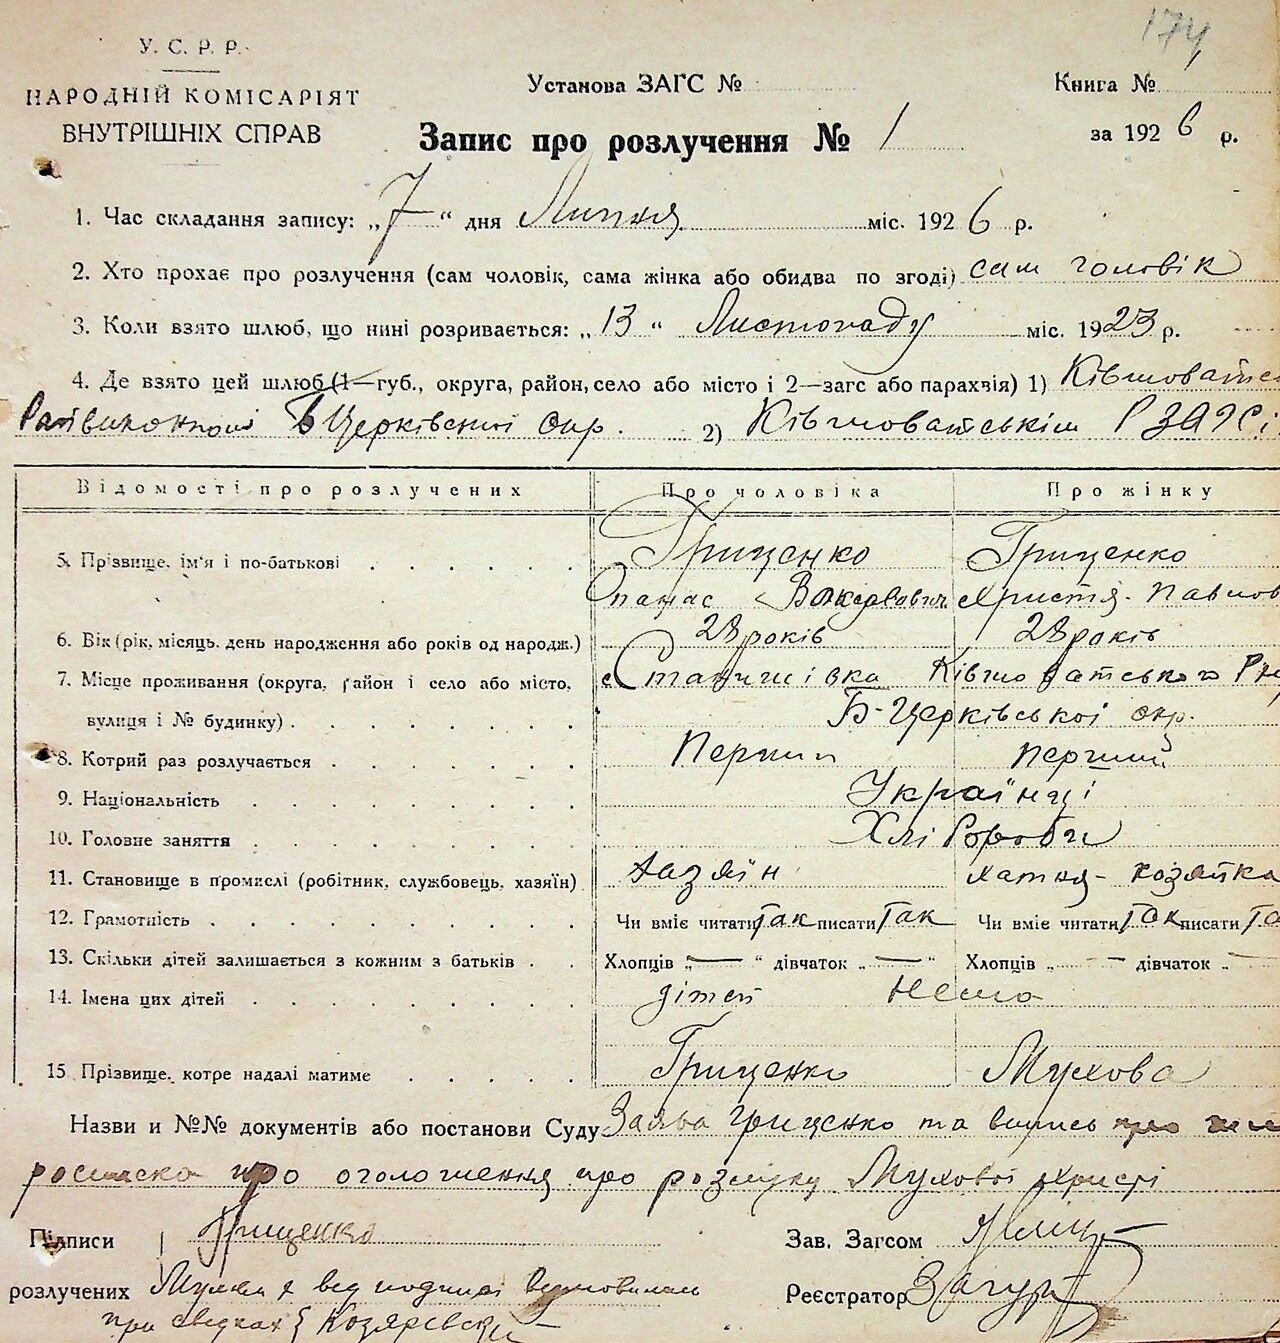 174
У. С. Р. Р.
НАРОДНІЙ КОМІСАРІЯТ
ВНУТРІШНІХ СПРАВ
Установа ЗАГС №
Книга №
Запис про розлучення № 1
за 1926 р.
1. Час складання запису: „7“ дня Липня міс. 1926 р.
2. Хто прохає про розлучення (сам чоловік, сама жінка або обидва по згоді) сам чоловік
3. Коли взято шлюб, що нині розривається: „13“ Листопаду міс. 1923 р.
4. Де взято цей шлюб (1—губ., округа, район, село або місто і 2—загс або парахвія) 1) Ківшоватсь
Райвиконкомі Б Церківської окр. 2) Ківшоватськім РЗАГСі
Відомості про розлучених Про чоловіка Про жінку
5. Прізвище, ім'я і по-батькові Гриценко Гриценко
Опанас Христя Павлов
6. Вік (рік, місяць, день народження або років од народж.) 28 років 28 років
7. Місце проживання (округа, район і село або місто, с Станишівка Ківшоватського
вулиця і № будинку) Б-Церківської окр.
8. Котрий раз розлучається Перший перший
9. Національність Українці
10. Головне заняття Хлібороби
11. Становище в промислі (робітник, службовець, хазяїн) хазяїн хатня хозяйка
12. Грамотність Чи вміє читати так писати так Чи вміє читати так писати та
13. Скільки дітей залишається з кожним з батьків Хлопців „—“ дівчаток „—“ Хлопців „ — дівчаток „ —
14. Імена цих дітей дітей нема
15 Прізвище, котре надалі матиме Гриценко Мухова
Назви и №№ документів або постанови Суду Заява Гриценко та випись про
росписка про оголошення про розлуку Мухової Христі
Підписи Гриценко Зав. Загсом
розлучених Мухова від подписі Реєстратор
при сведках Козяревск